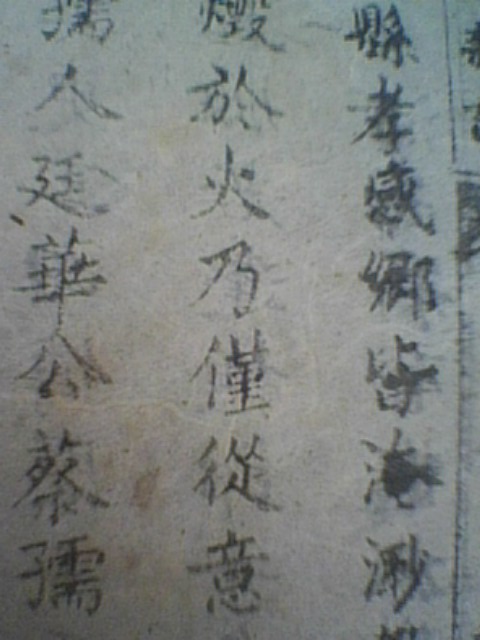 縣孝感鄉皆淹渺
燬於火乃僅從意
孺人廷華公蔡孺